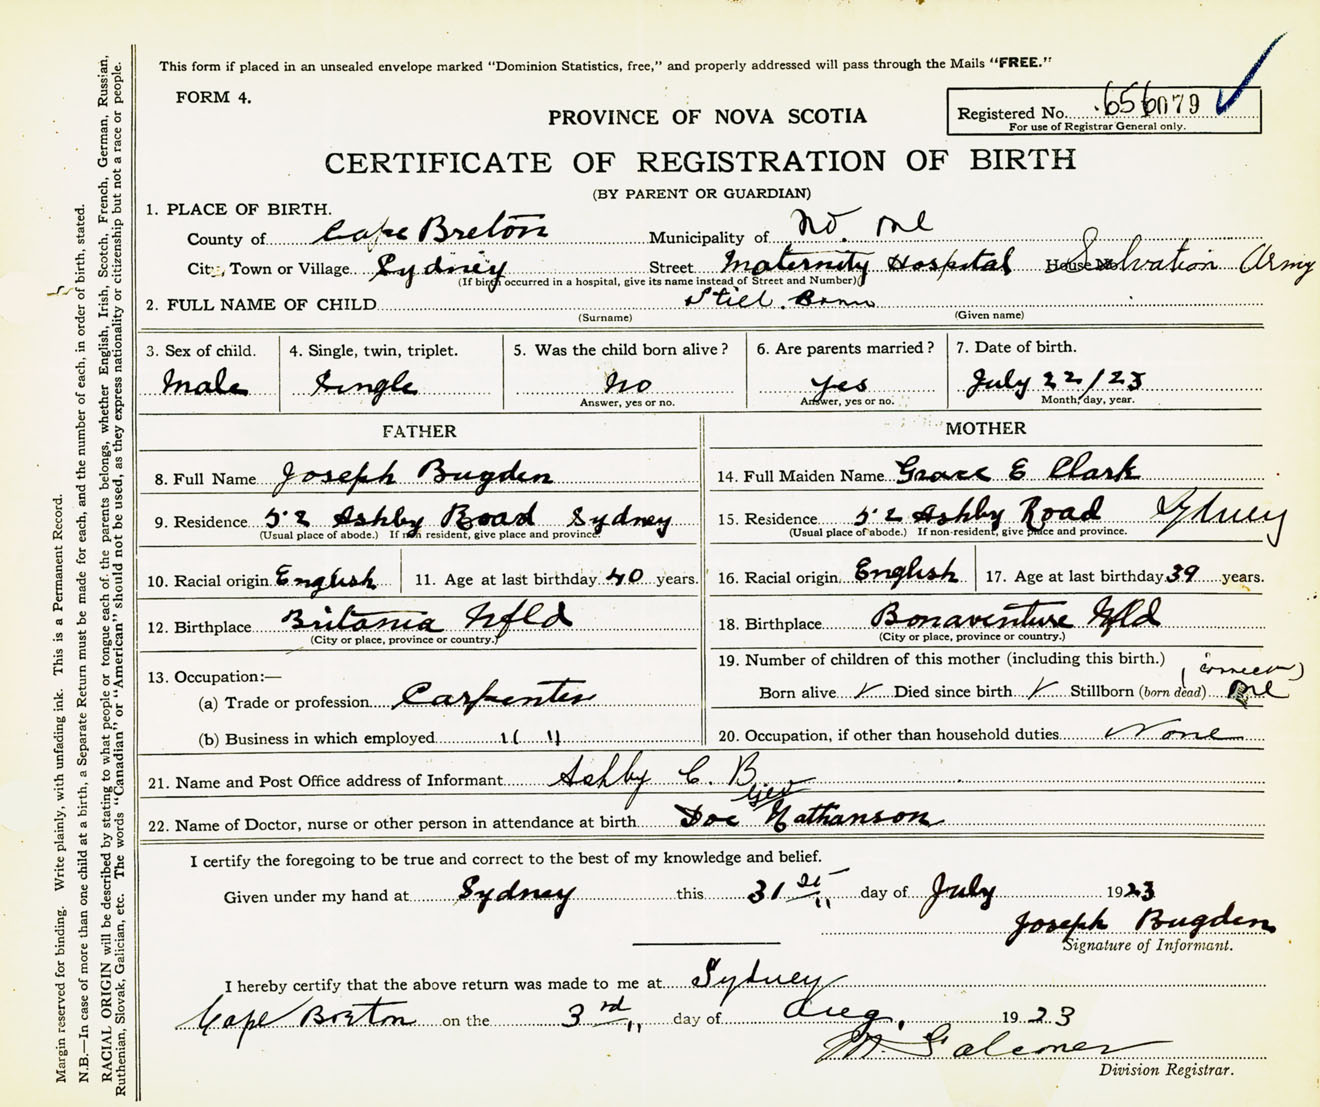 This form if placed in an unsealed envelope marked "Dominion Statistics, free," and properly addressed will pass through the Mails "FREE."
FORM 4.
PROVINCE OF NOVA SCOTIA
Registered No. 656079
For use of Registrar General only.
CERTIFICATE OF REGISTRATION OF BIRTH
(BY PARENT OR GUARDIAN)
1. PLACE OF BIRTH.
County of Cape Breton Municipality of No. one
City, Town or Village Sydney Street Maternity Hospital House No. Salvation Army
(If birth occurred in a hospital, give its name instead of Street and Number)
2. FULL NAME OF CHILD Still Born
(Surname) (Given name)
3. Sex of child. 4. Single, twin, triplet. 5. Was the child born alive? 6. Are parents married? 7. Date of birth.
Male Single No Yes July 22/23
Answer, yes or no. Answer, yes or no. Month, day, year.
FATHER MOTHER
8. Full Name Joseph Bugden 14. Full Maiden Name Grace E Clark
9. Residence 52 Ashby Road Sydney 15. Residence 52 Ashby Road Sydney
(Usual place of abode.) If non resident, give place and province. (Usual place of abode.) If non-resident, give place and province.
10. Racial origin English 11. Age at last birthday 40 years. 16. Racial origin English 17. Age at last birthday 39 years.
12. Birthplace Britania Nfld 18. Birthplace Bonaventure Nfld
(City or place, province or country.) (City or place, province or country.)
13. Occupation:— 19. Number of children of this mother (including this birth.) (correct)
(a) Trade or profession Carpenter Born alive ✓ Died since birth ✓ Stillborn (born dead) one
(b) Business in which employed " " 20. Occupation, if other than household duties None
21. Name and Post Office address of Informant Ashby C. B
22. Name of Doctor, nurse or other person in attendance at birth Doc Nathanson
I certify the foregoing to be true and correct to the best of my knowledge and belief.
Given under my hand at Sydney this 31st day of July 1923
Joseph Bugden
Signature of Informant.
I hereby certify that the above return was made to me at Sydney
Cape Breton on the 3rd day of Aug. 1923
Division Registrar.
Margin reserved for binding. Write plainly, with unfading ink. This is a Permanent Record.
N.B.—In case of more than one child at a birth, a Separate Return must be made for each, and the number of each, in order of birth, stated.
RACIAL ORIGIN will be described by stating to what people or tongue each of the parents belongs, whether English, Irish, Scotch, French, German, Russian,
Ruthenian, Slovak, Galician, etc. The words "Canadian" or "American" should not be used, as they express nationality or citizenship but not a race or people.